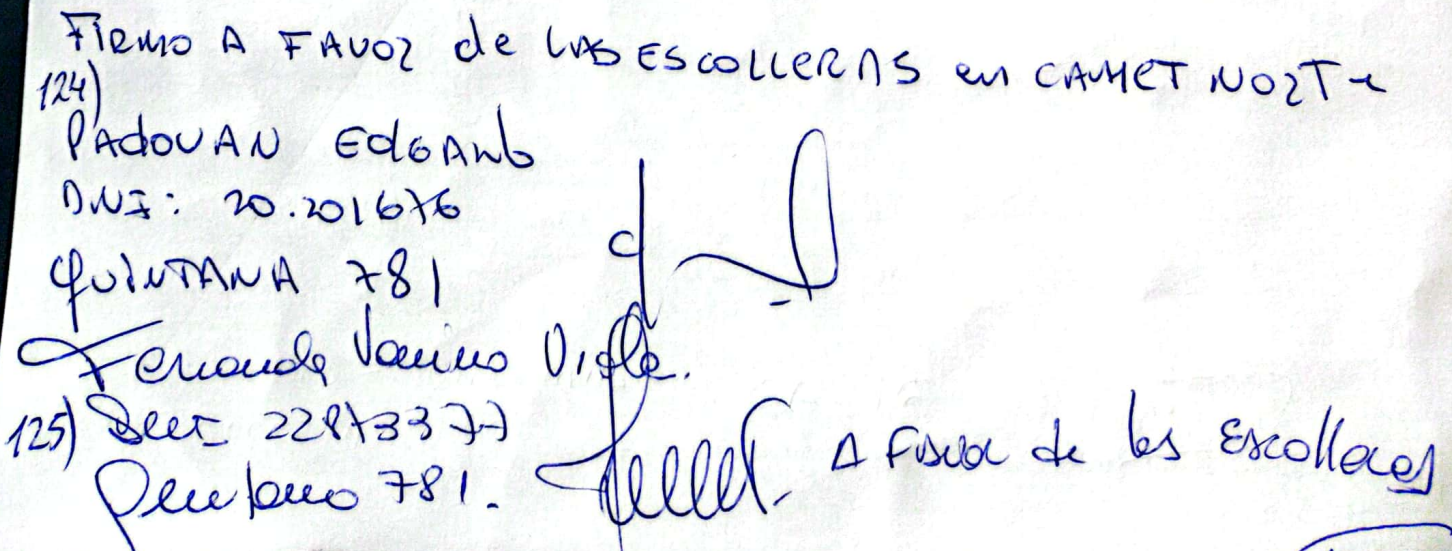 Firmo A FAVOR de LAS ESCOLLERAS en CAMET NORTE
124)
PADOVAN EdGARdo
DNI: 20.201676
QUINTANA 781
Fernanda Vanina Viola.
125) DNI 22873377
Quintana 781. A Favor de las Escolleras